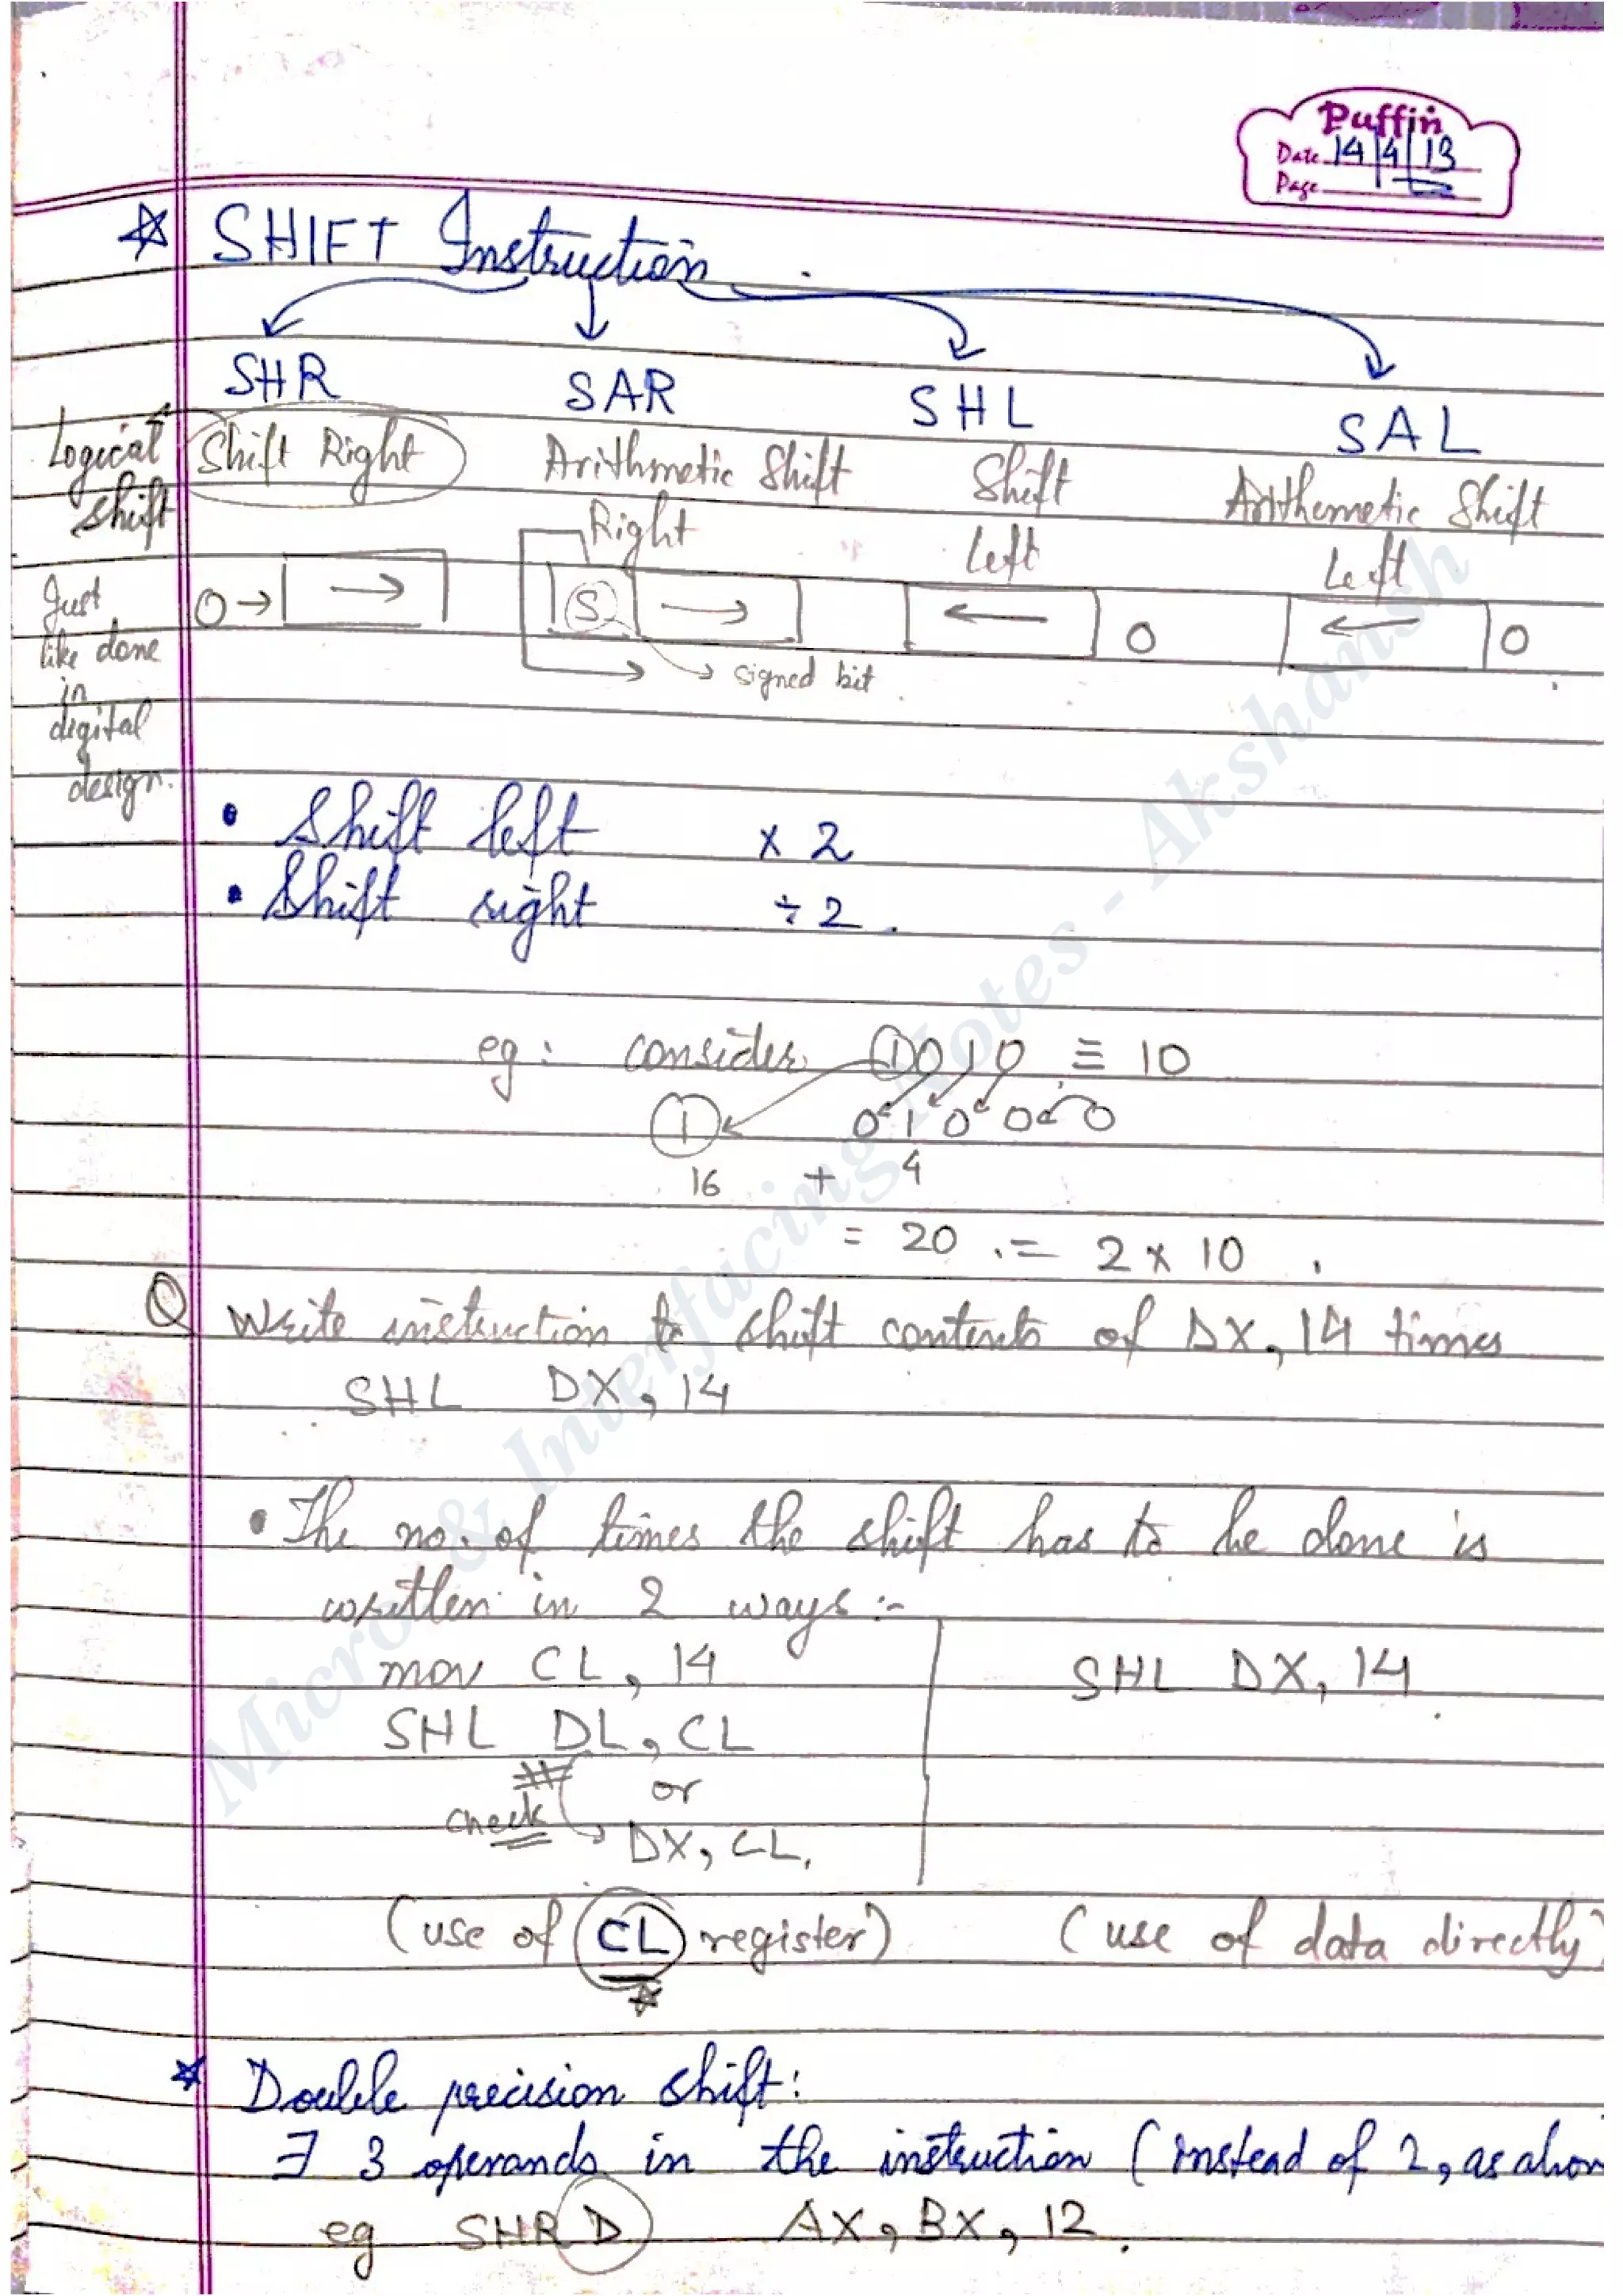 Puffin
Date 14/4/13
Page
☆ SHIFT Instruction
SHR SAR SHL SAL
Logical shift Shift Right Arithmetic Shift Right Shift Left Arithemetic Shift Left
Just like done in digital design.
0 → → S → ← 0 ← 0
signed bit
• Shift left × 2
• Shift right ÷ 2 .
eg: consider 1010 ≡ 10
1 0 1 0 0 0
16 + 4
= 20 . = 2 × 10 .
Q Write instruction to shift contents of DX, 14 times
SHL DX, 14
• The no. of times the shift has to be done is
written in 2 ways :-
mov CL, 14 SHL DX, 14 .
SHL DL, CL
or
check DX, CL.
(use of CL register) (use of data directly)
☆ Double precision shift:
∃ 3 operands in the instruction (instead of 2, as abov
eg SHRD AX, BX, 12 .
Micro & Interfacing Notes - Akshansh